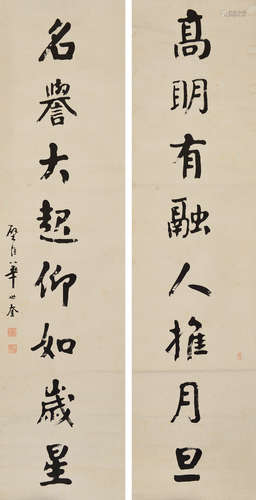 高明有融人推月旦
名譽大起仰如歲星
璧臣華世奎